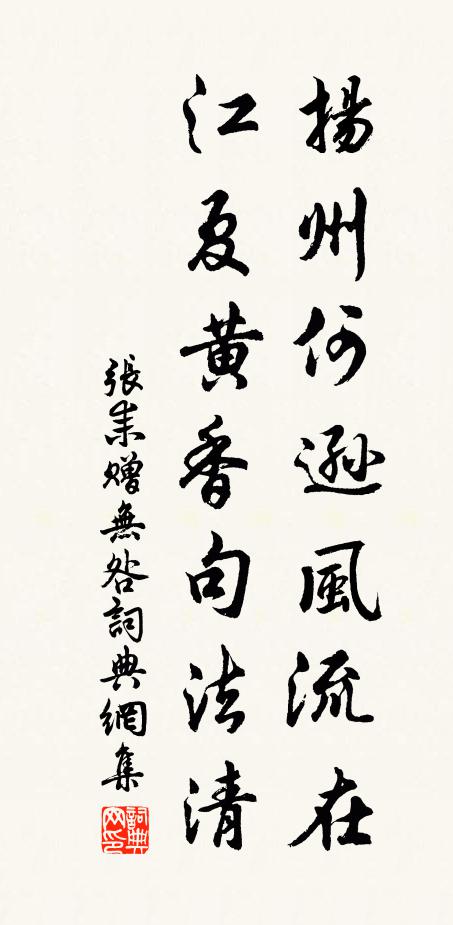 揚州何遜風流在
江夏黄香句法清
張耒贈無咎詞典網集
詞典网印